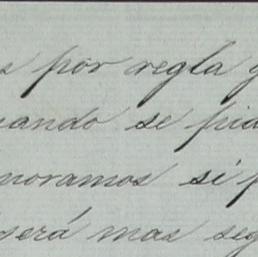 s por regla g
uando se pid
noramos si p
será mas seg